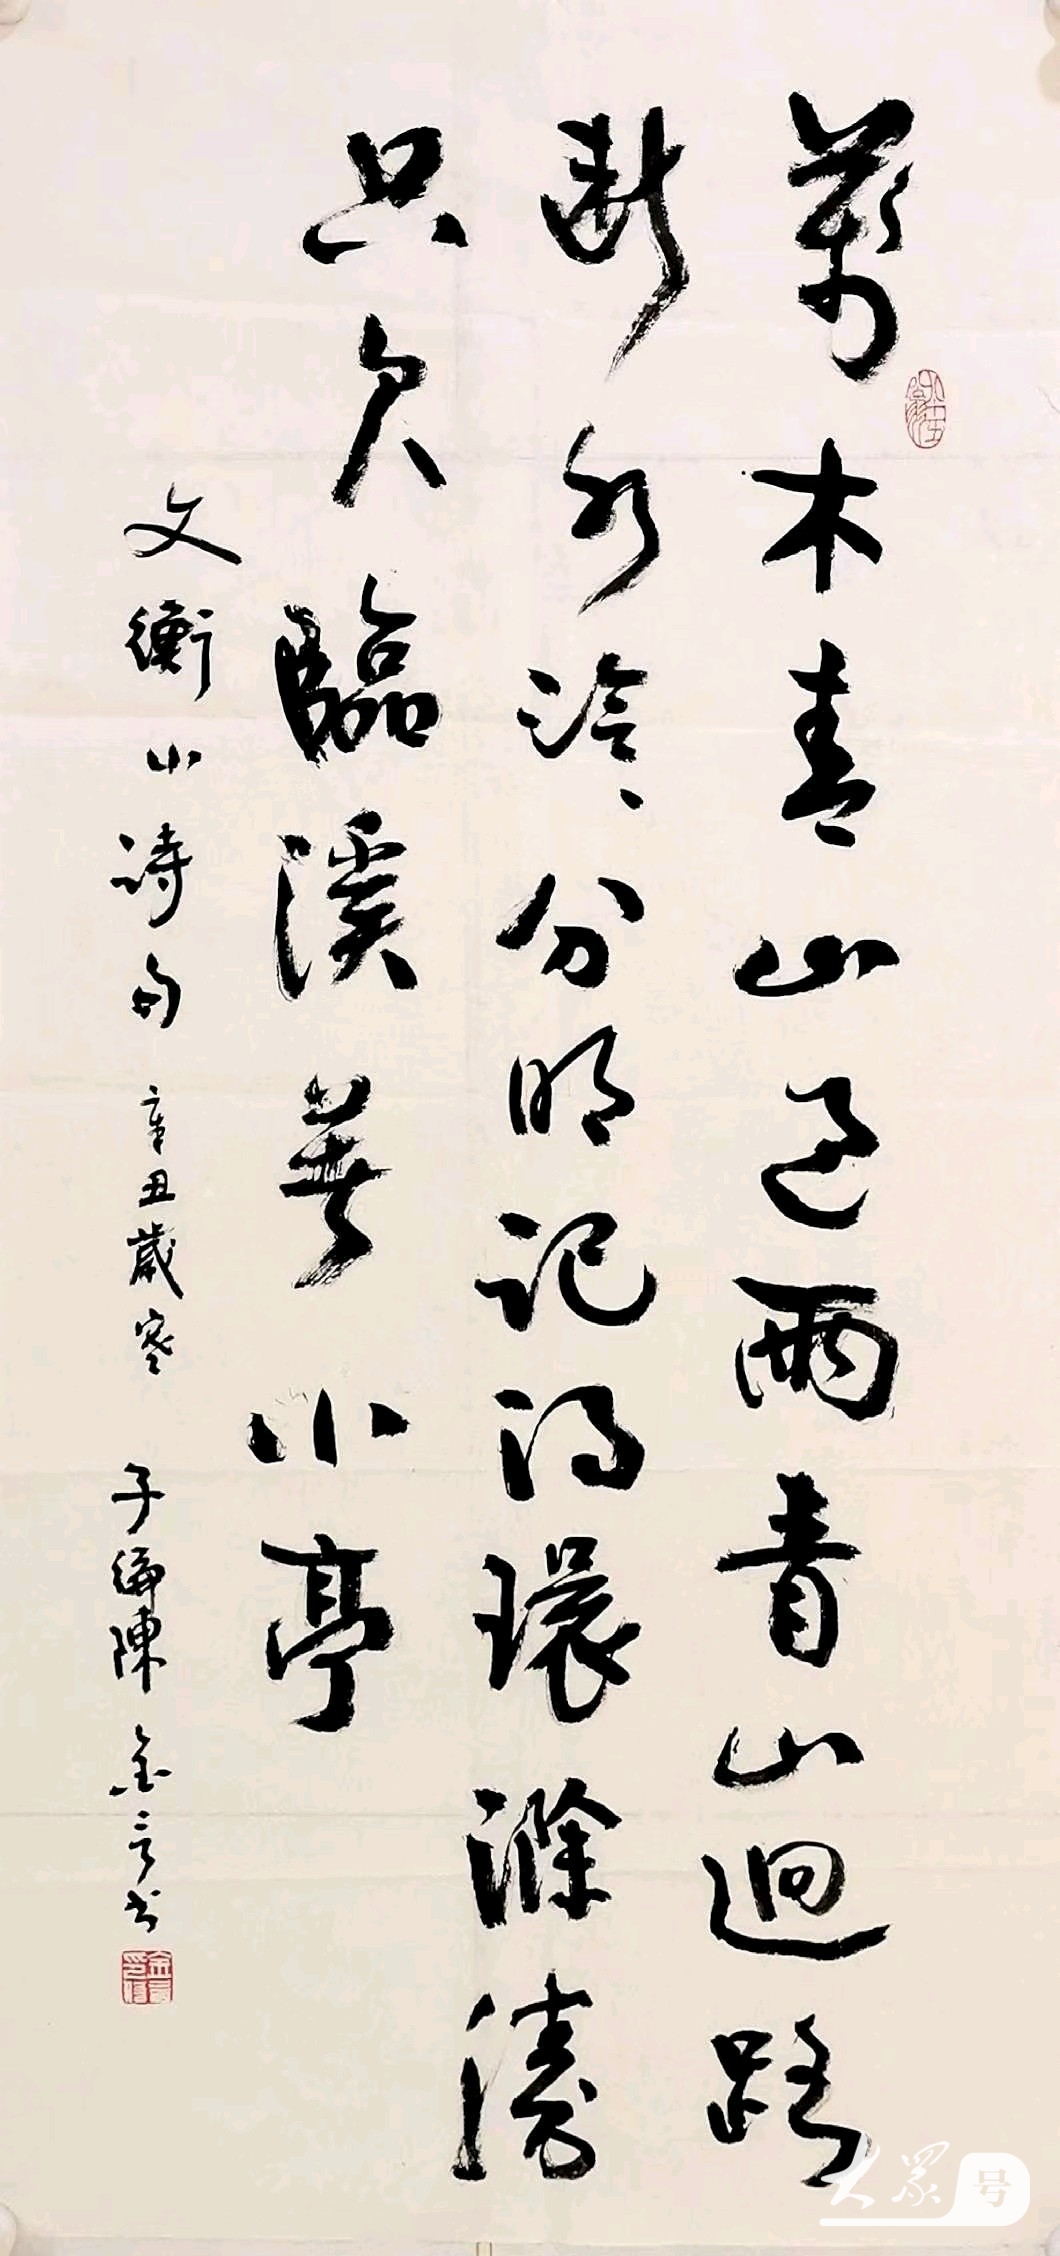 萬木山過雨青山迴路
斷水泠泠分明記得環滁
只欠臨溪著小亭
文衡山詩句 辛丑歲寒 陳金言書
大眾号